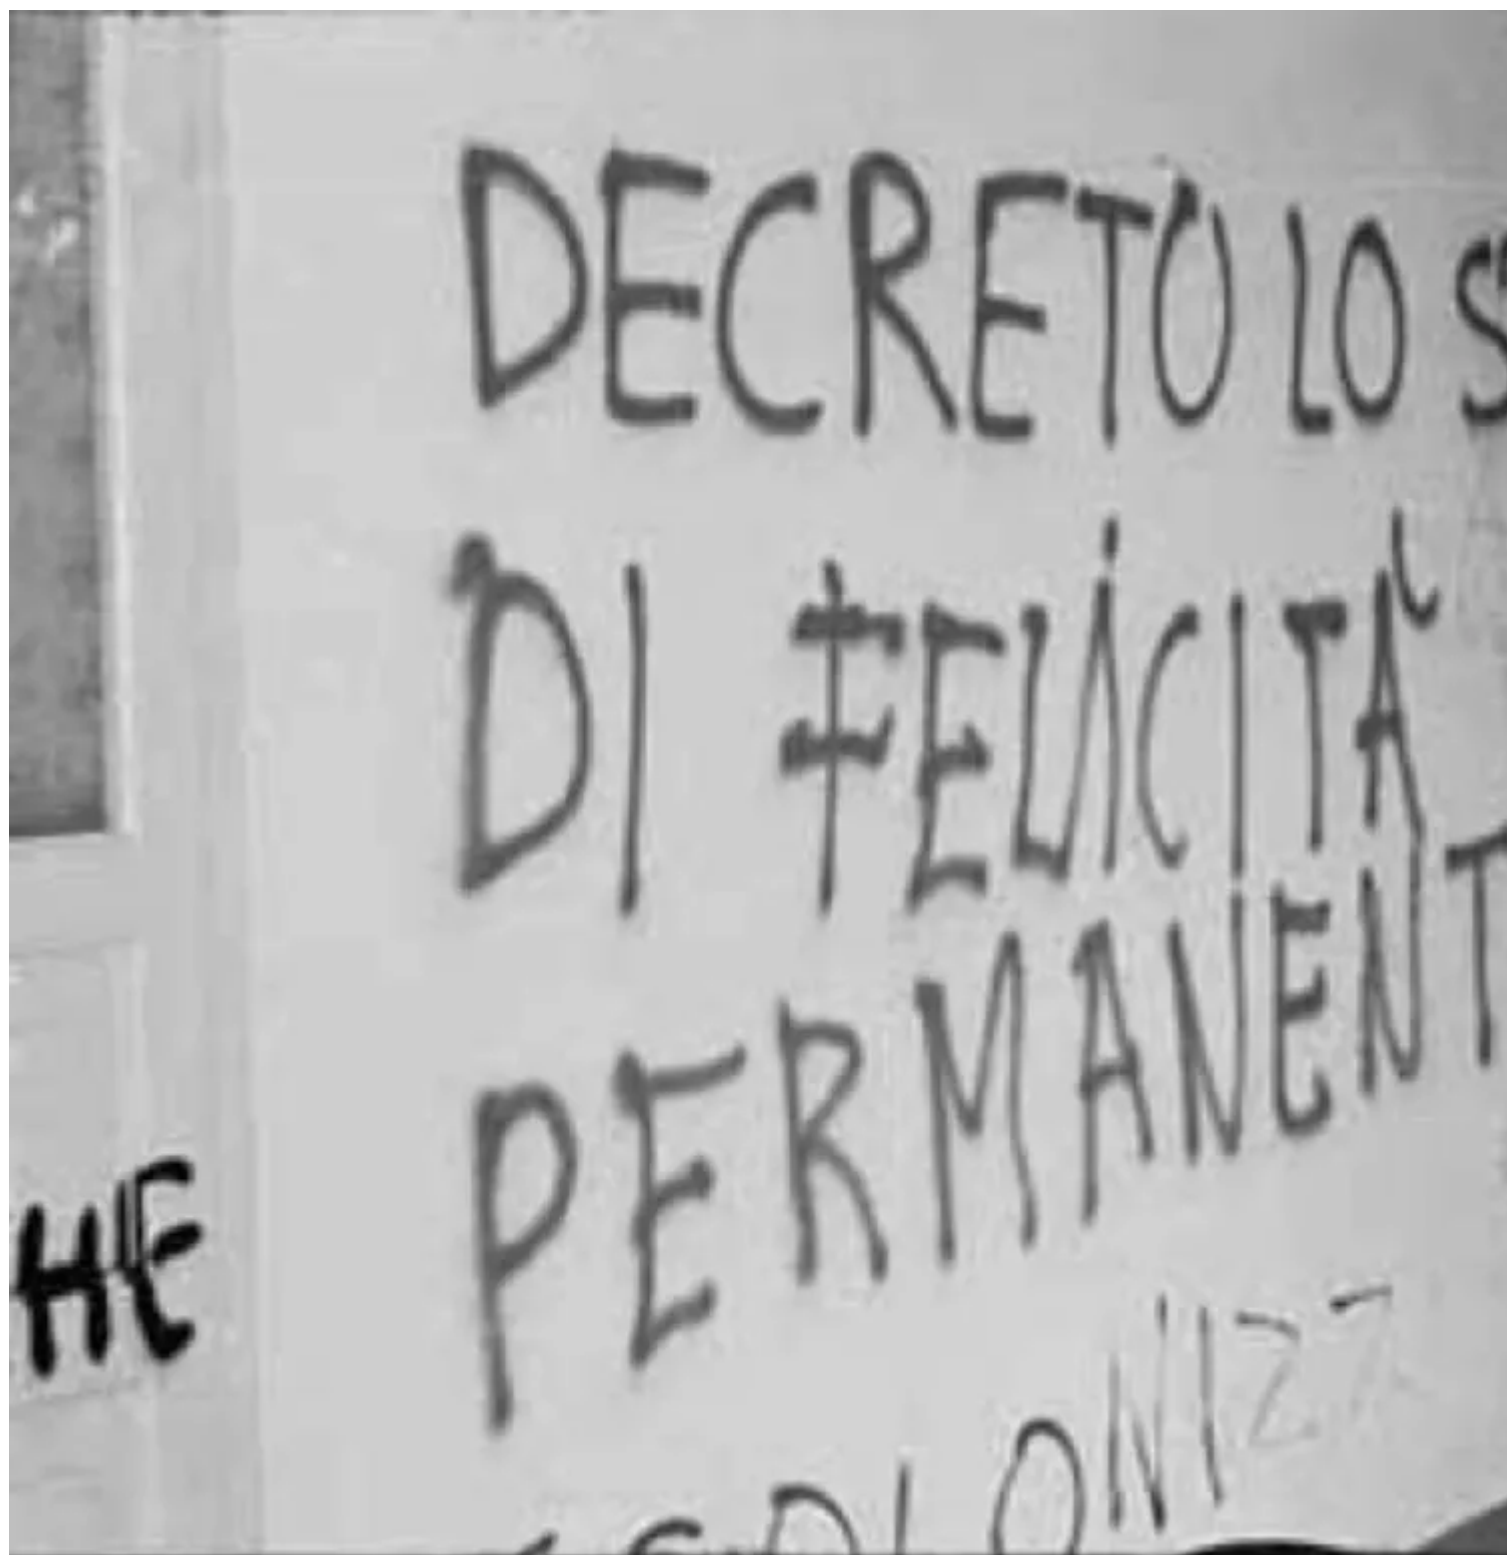 DECRETO LO S
DI FELICITÀ
PERMANENT
HE